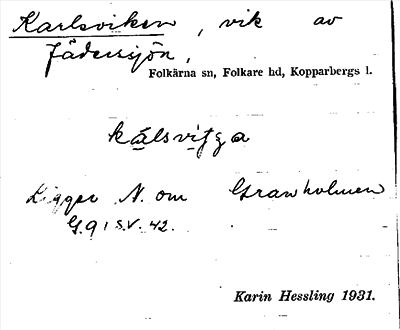 Karlsviken, vik av
Fädersjön,
Folkärna sn, Folkare hd, Kopparbergs l.
Ligger N. om Granholmen
G. 91 S.V. 42.
Karin Hessling 1931.